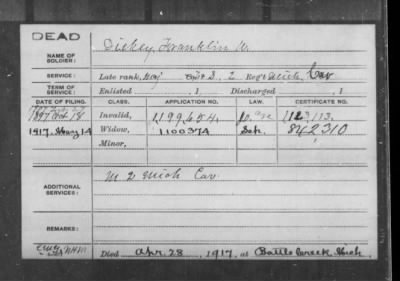 DEAD
NAME OF SOLDIER: Dickey, Franklin W.
SERVICE: Late rank, Co. D, 2 Reg't Mich. Cav
TERM OF SERVICE: Enlisted , 1 Discharged , 1
DATE OF FILING. CLASS. APPLICATION NO. LAW. CERTIFICATE NO.
1897 Oct 18 Invalid, 1199654
1917. May 14 Widow, 1100374 842310
Minor,
ADDITIONAL SERVICES: M 2 Mich Cav.
REMARKS:
Died Apr. 28, 1917, at Battle Creek, Mich.